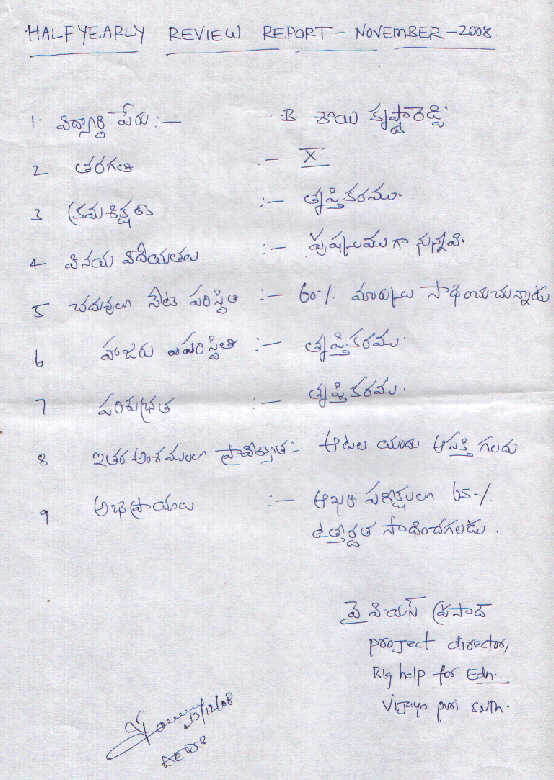 HALF YEARLY REVIEW REPORT - NOVEMBER - 2008
1 విద్యార్థి పేరు :- B సాయి కృష్ణారెడ్డి
2 తరగతి :- X
3 క్రమశిక్షణ :- తృప్తికరము.
4 వినయ విధేయతలు :- పుష్కలముగా నున్నవి.
5 చదువులో నేటి పరిస్థితి :- 60% మార్కులు సాధించుచున్నాడు
6 హాజరు పరిస్థితి :- తృప్తికరము.
7 పరిశుభ్రత :- తృప్తికరము.
8 ఇతర అంశములలో ప్రావీణ్యత :- ఆటల యందు ఆసక్తి గలదు
9 అభిప్రాయలు :- ఆఖరి పరీక్షలలో 65%
ఉత్తీర్ణత సాధించగలడు.
వై సియస్ ప్రసాద్
project director,
Big help for Edn.
south.
12/08